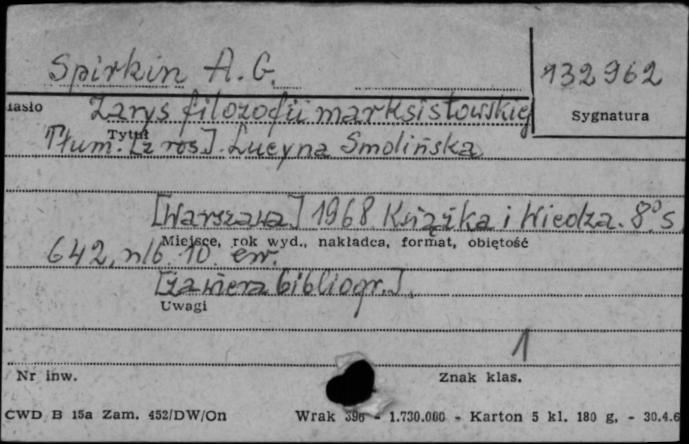 Spirkin A. G.
132962
iasło
Zarys filozofii marksistowskiej
Sygnatura
Tytuł
Tłum. [z ros]. Lucyna Smolińska
[Warszawa] 1968 Książka i Wiedza. 8° s
Miejsce, rok wyd., nakładca, format, objętość
642, nlb 10 err.
[zawiera bibliogr.]
Uwagi
1
Nr inw.
Znak klas.
CWD B 15a Zam. 452/DW/On Wrak 396 - 1.730.000 - Karton 5 kl. 180 g, - 30.4.6